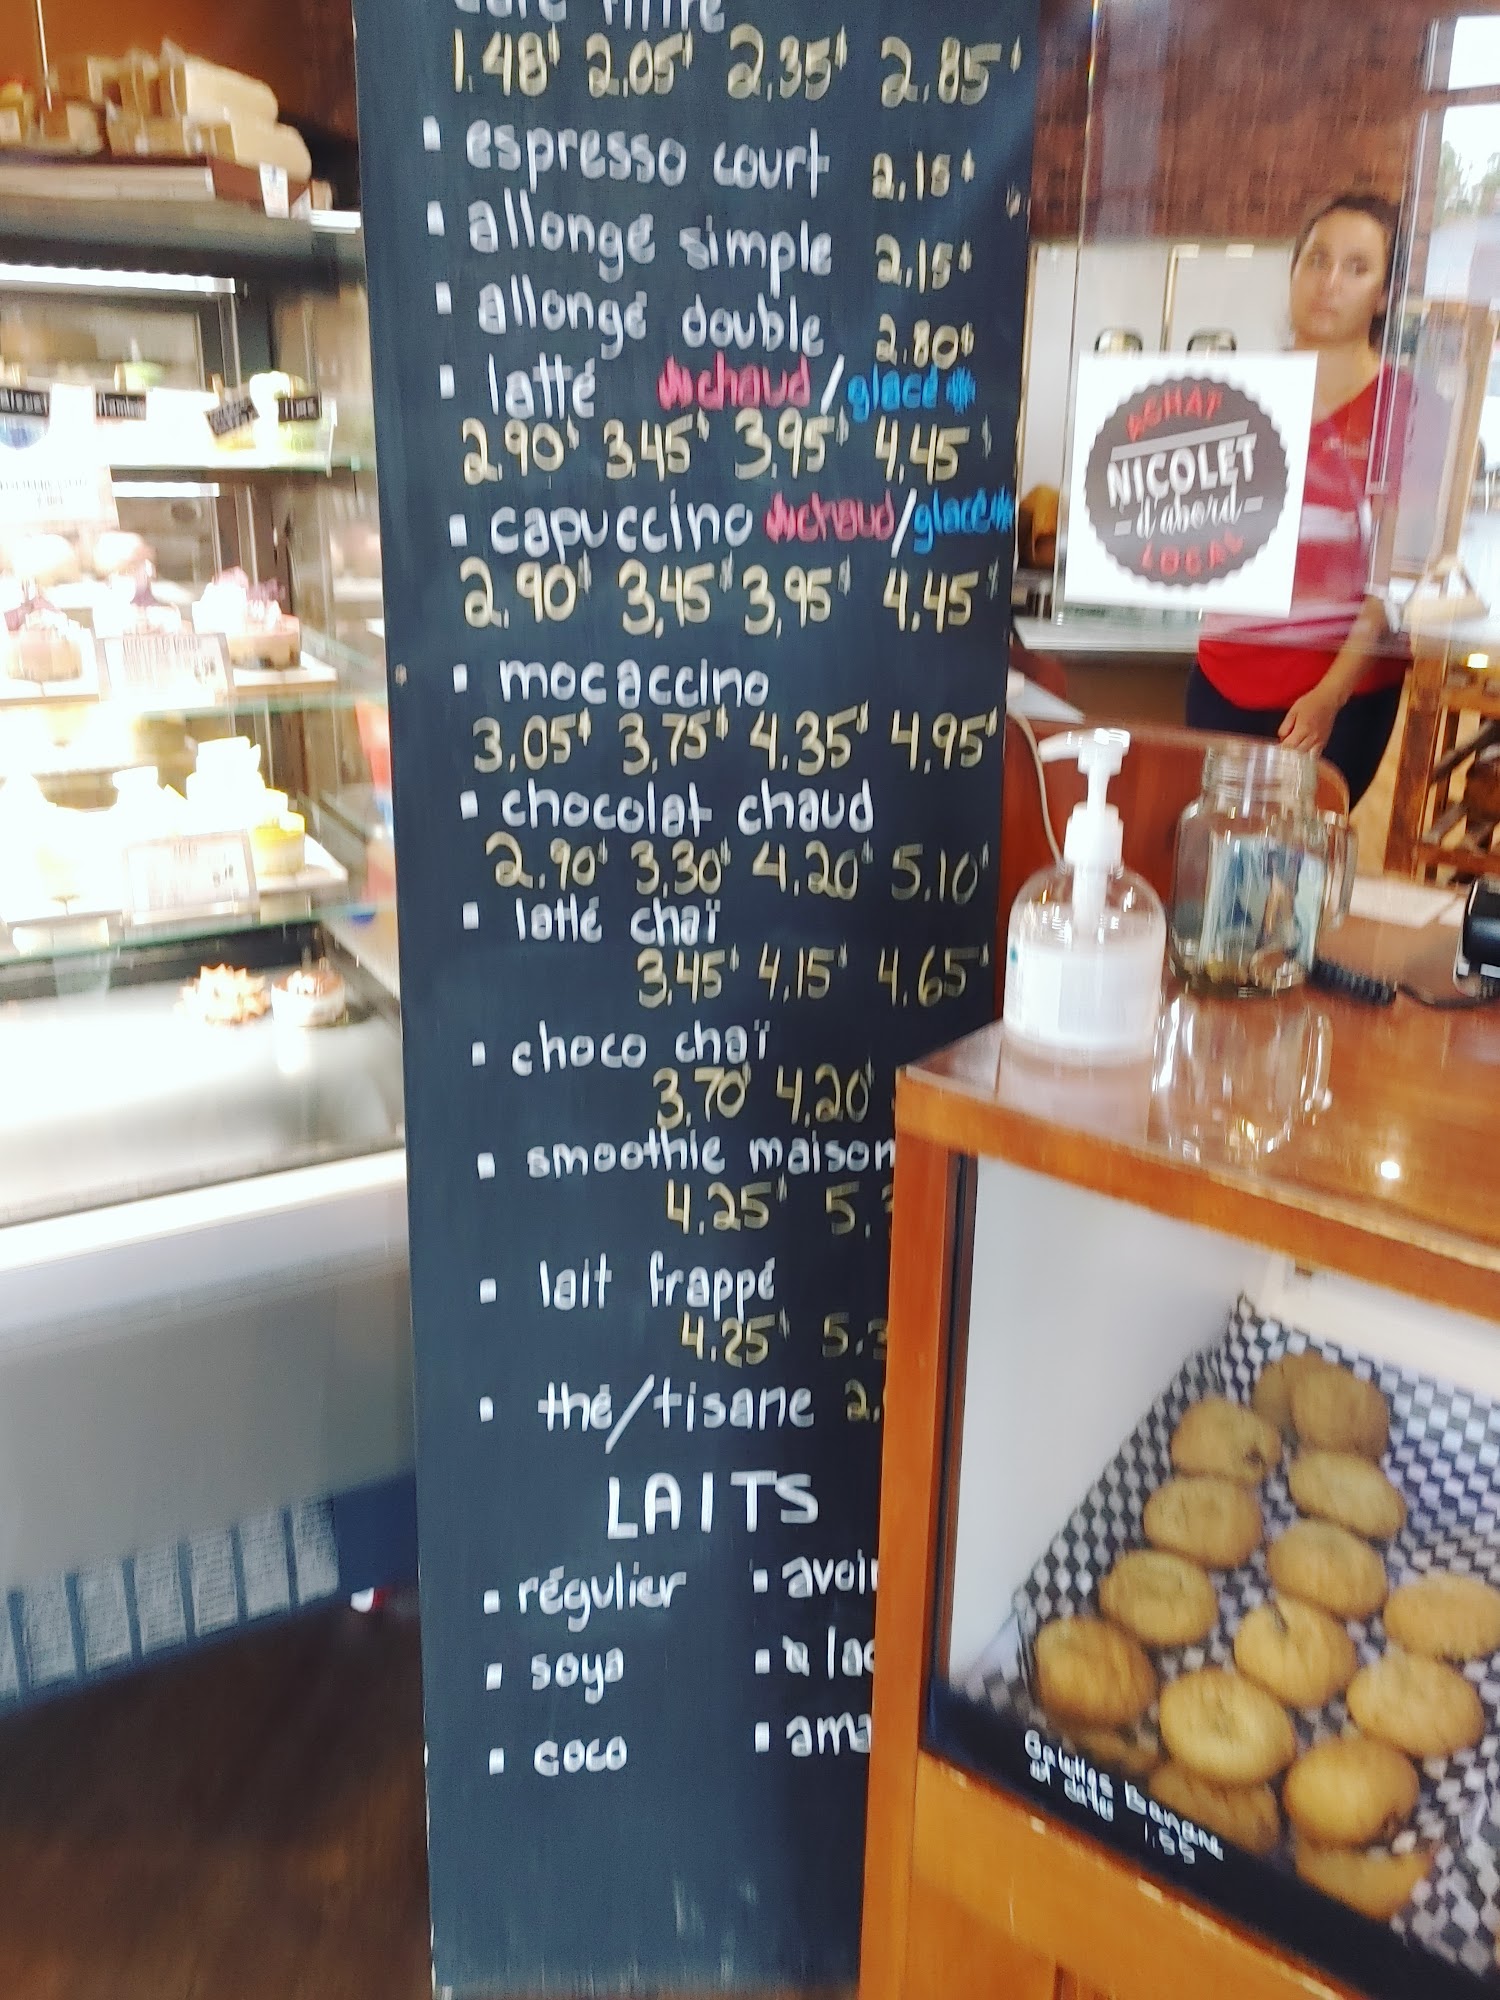 café filtre
1.48$ 2.05$ 2.35$ 2.85$
▪ espresso court 2.15$
▪ allongé simple 2.15$
▪ allongé double 2.80$
▪ latté chaud/glacé
2.90$ 3.45$ 3.95$ 4.45$
▪ capuccino chaud/glacé
2.90$ 3.45$ 3.95$ 4.45$
▪ mocaccino
3.05$ 3.75$ 4.35$ 4.95$
▪ chocolat chaud
2.90$ 3.30$ 4.20$ 5.10$
▪ latté chaï
3.45$ 4.15$ 4.65$
▪ choco chaï
3.70$ 4.20$
▪ smoothie maison
4.25$ 5.
▪ lait frappé
4.25$ 5.3
▪ thé/tisane 2.
LAITS
▪ régulier
▪ soya
▪ coco
▪ avoin
▪ lac
▪ ama
ACHAT
NICOLET
-d'abord-
LOCAL
Galettes Banane
et date 1.99